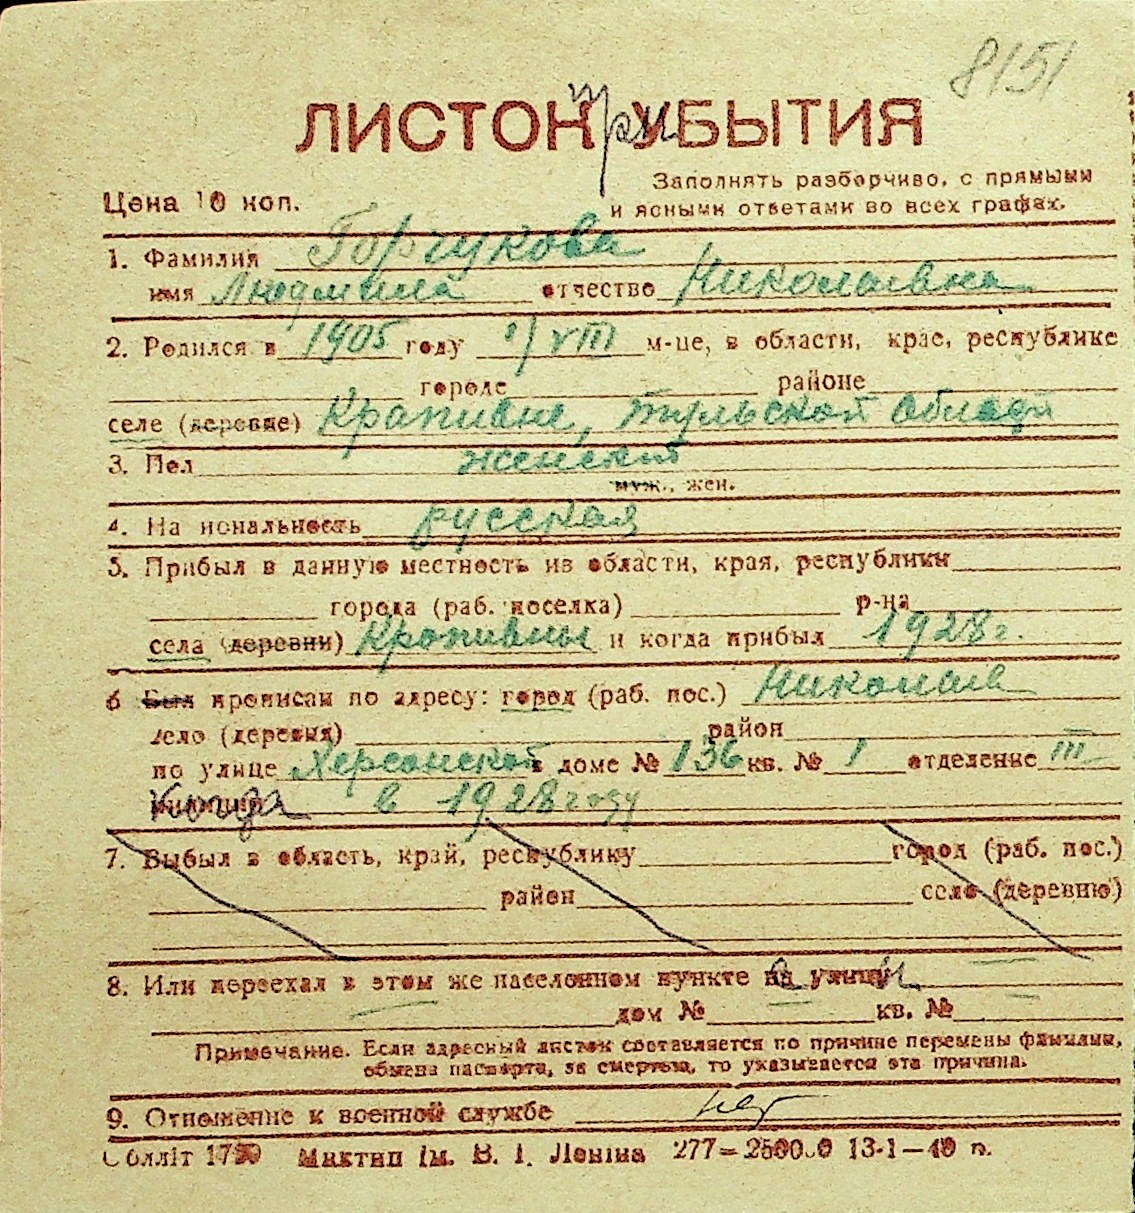 8151
ЛИСТОК при УБЫТИЯ
Цена 10 коп.
Заполнять разборчиво, с прямыми
и ясными ответами во всех графах.
1. Фамилия Горчукова
имя Людмила отчество Николаевна
2. Родился в 1905 году 1/VIII м-це, в области, крае, республике
городе районе
селе (деревне) Крапивне, Тульской област
3. Пол женский
муж., жен.
4. Национальность русская
5. Прибыл в данную местность из области, края, республики
города (раб. поселка) р-на
села (деревни) Кропивны и когда прибыл 1928 г.
6 Был прописан по адресу: город (раб. пос.) Николаев
село (деревня) район
по улице Херсонской в доме № 136 кв. № 1 отделение III
Когда в 1928 году
7. Выбыл в область, край, республику город (раб. пос.)
район село (деревню)
8. Или переехал в этом же населенном пункте на улицу
дом № кв. №
Примечание. Если адресный листок составляется по причине перемены фамилии,
обмена паспорта, за смертью, то указывается эта причина.
9. Отношение к военной службе нет
Облліт Миктип ім. В. І. Леніна 277— 13-1—40 р.